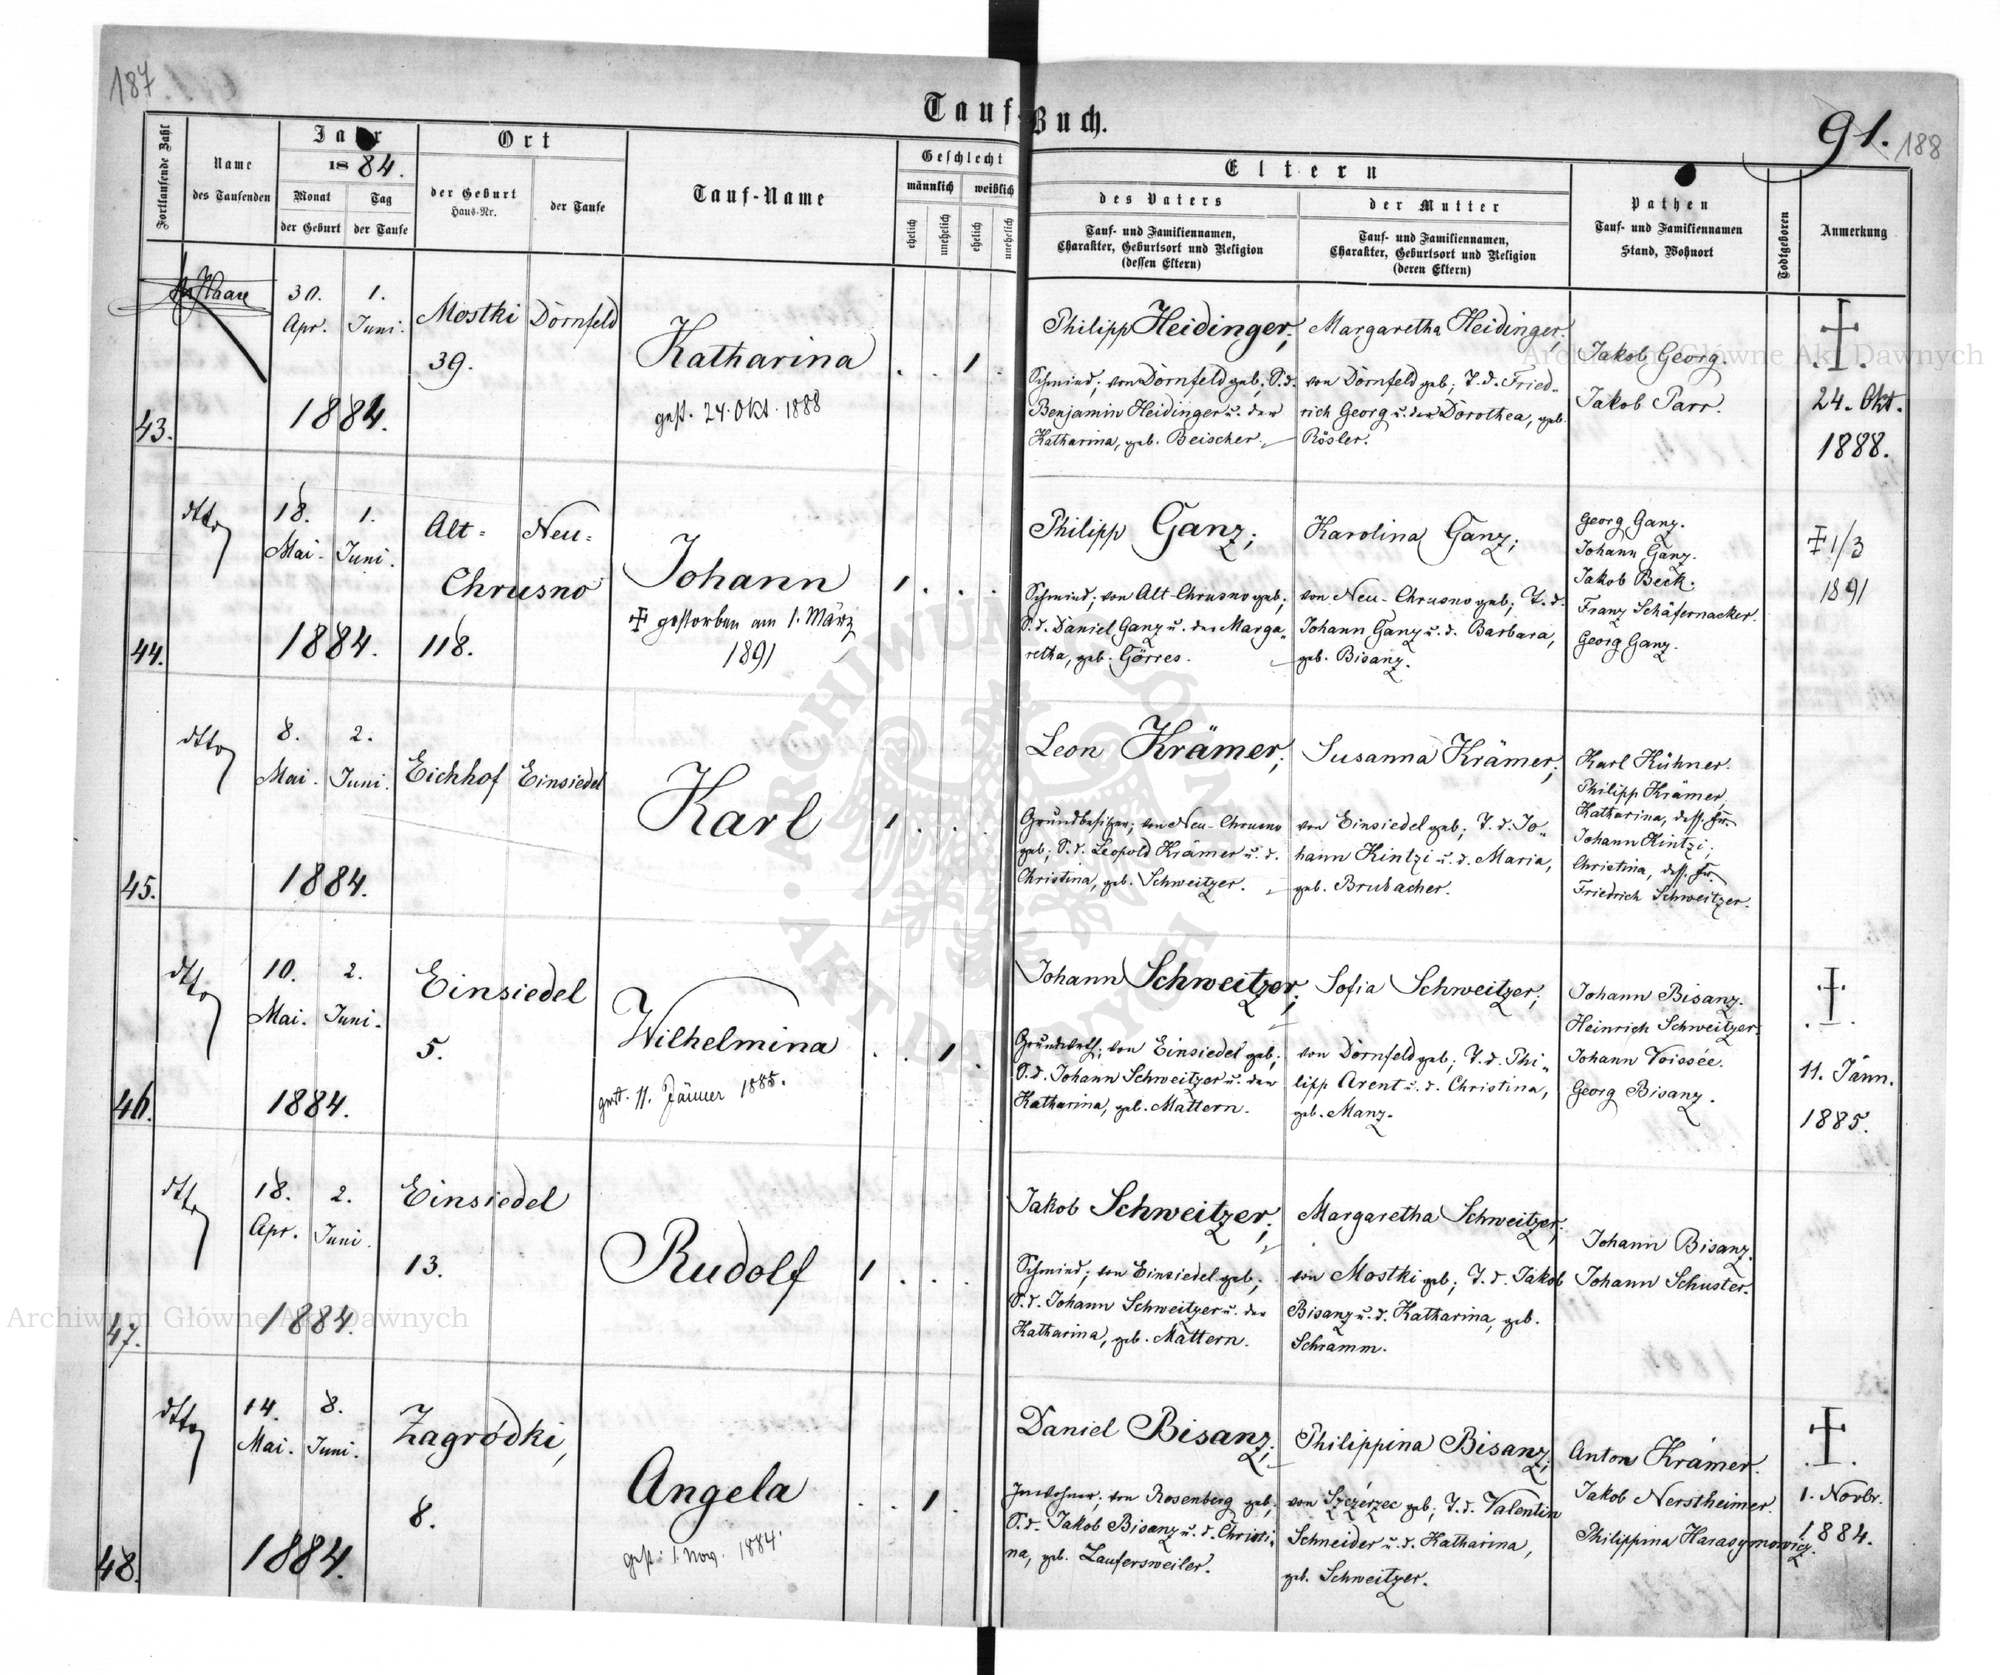 187
Tauf-Buch.
91.
188
Fortlaufende Zahl
Name
des Taufenden
Jahr
1884.
Monat
der Geburt
Tag
der Taufe
Ort
der Geburt
Haus-Nr.
der Taufe
Tauf-Name
Geschlecht
männlich
weiblich
ehelich
unehelich
ehelich
unehelich
Eltern
des Vaters
Tauf- und Familiennamen,
Charakter, Geburtsort und Religion
(dessen Eltern)
der Mutter
Tauf- und Familiennamen,
Charakter, Geburtsort und Religion
(deren Eltern)
Pathen
Tauf- und Familiennamen
Stand, Wohnort
Todtgeboren
Anmerkung
43.
30.
Apr.
1.
Juni.
1884.
Mostki
39.
Dornfeld
Katharina
gest. 24. Okt. 1888
1
Philipp Heidinger;
Schmied; von Dornfeld geb; S. d.
Benjamin Heidinger u. der
Katharina, geb. Beischer.
Margaretha Heidinger;
von Dornfeld geb; T. d. Fried-
rich Georg u. der Dorothea, geb.
Rösler.
Jakob Georg.
Jakob Parr.
24. Okt.
1888.
44.
dtto
18.
Mai.
1.
Juni.
1884.
Alt- Neu-
Chrusno
118.
Johann
gestorben am 1. März
1891
1
Philipp Ganz;
Schmied; von Alt-Chrusno geb;
S. d. Daniel Ganz u. der Marga-
retha, geb. Görres.
Karolina Ganz;
von Neu-Chrusno geb; T. d.
Johann Ganz u. d. Barbara,
geb. Bisanz.
Georg Ganz.
Johann Ganz.
Jakob Beck.
Franz Schäfernacker.
Georg Ganz.
1/3
1891
45.
dtto
8.
Mai.
2.
Juni.
1884.
Eichhof
Einsiedel
Karl
1
Leon Krämer;
Grundbesitzer; von Neu-Chrusno
geb; S. d. Leopold Krämer u. d.
Christina, geb. Schweitzer.
Susanna Krämer;
von Einsiedel geb; T. d. Jo-
hann Kintzi u. d. Maria,
geb. Brubacher.
Karl Kühner.
Philipp Krämer,
Katharina, dess. Fr.
Johann Kintzi;
Christina, dess. Fr.
Friedrich Schweitzer.
46.
dtto
10.
Mai.
2.
Juni.
1884.
Einsiedel
5.
Wilhelmina
gest. 11. Jänner 1885.
1
Johann Schweitzer;
Grundwirth; von Einsiedel geb;
S. d. Johann Schweitzer u. der
Katharina, geb. Mattern.
Sofia Schweitzer;
von Dornfeld geb; T. d. Phi-
lipp Arent u. d. Christina,
geb. Manz.
Johann Bisanz.
Heinrich Schweitzer.
Johann Voissée.
Georg Bisanz.
11. Jänn.
1885.
47.
dtto
18.
Apr.
2.
Juni.
1884.
Einsiedel
13.
Rudolf
1
Jakob Schweitzer;
Schmied; von Einsiedel geb;
S. d. Johann Schweitzer u. der
Katharina, geb. Mattern.
Margaretha Schweitzer;
von Mostki geb; T. d. Jakob
Bisanz u. d. Katharina, geb.
Schramm.
Johann Bisanz.
Johann Schuster.
48.
dtto
14.
Mai.
8.
Juni.
1884.
Zagródki,
8.
Angela
gest. 1. Nov. 1884.
1
Daniel Bisanz;
Inwohner; von Rosenberg geb;
S. d. Jakob Bisanz u. d. Christi-
na, geb. Laufersweiler.
Philippina Bisanz;
von Szczérzec geb; T. d. Valentin
Schneider u. d. Katharina,
geb. Schweitzer.
Anton Krämer.
Jakob Nerstheimer.
Philippina Harasymowicz.
1. Novbr.
1884.
Archiwum Główne Akt Dawnych
Archiwum Główne Akt Dawnych